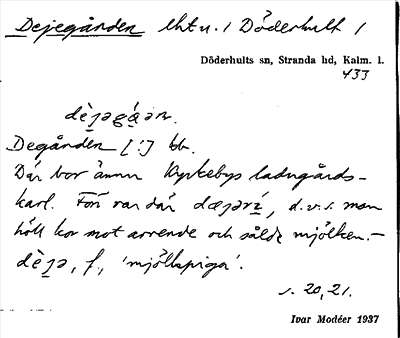 Dejegården lht u. / Döderhult /
Döderhults sn, Stranda hd, Kalm. l.
433
dè̱jəgá̱ən.
Degården [:] bb.
Där bor ännu Kyrkebys ladugårds-
karl. Förr var där dæjərí, d.v.s. man
höll kor mot arrende och sålde mjölken. –
dè̱jə, f., 'mjölkpiga'.
s. 20, 21.
Ivar Modéer 1937